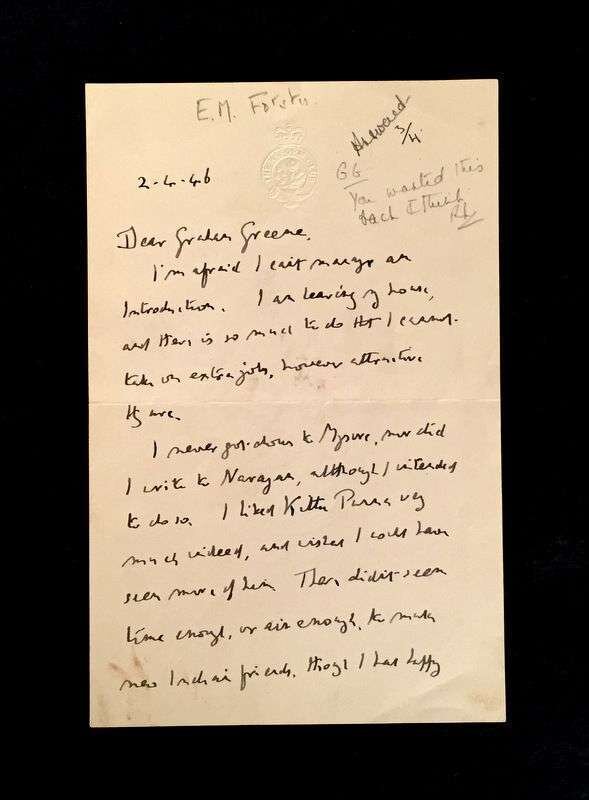 E.M. Forster.
Answered
3/4
GG
You wanted this
back I think
2-4-46
Dear Graham Greene,
I'm afraid I can't manage an
Introduction. I am leaving my house,
and there is so much to do that I cannot
take on extra jobs, however attractive
they are.
I never got down to Mysore, nor did
I write to Narayan, although I intended
to do so. I liked Kittu Purna very
much indeed, and wished I could have
seen more of him. There didn't seem
time enough, or air enough, to make
new Indian friends, though I had happy